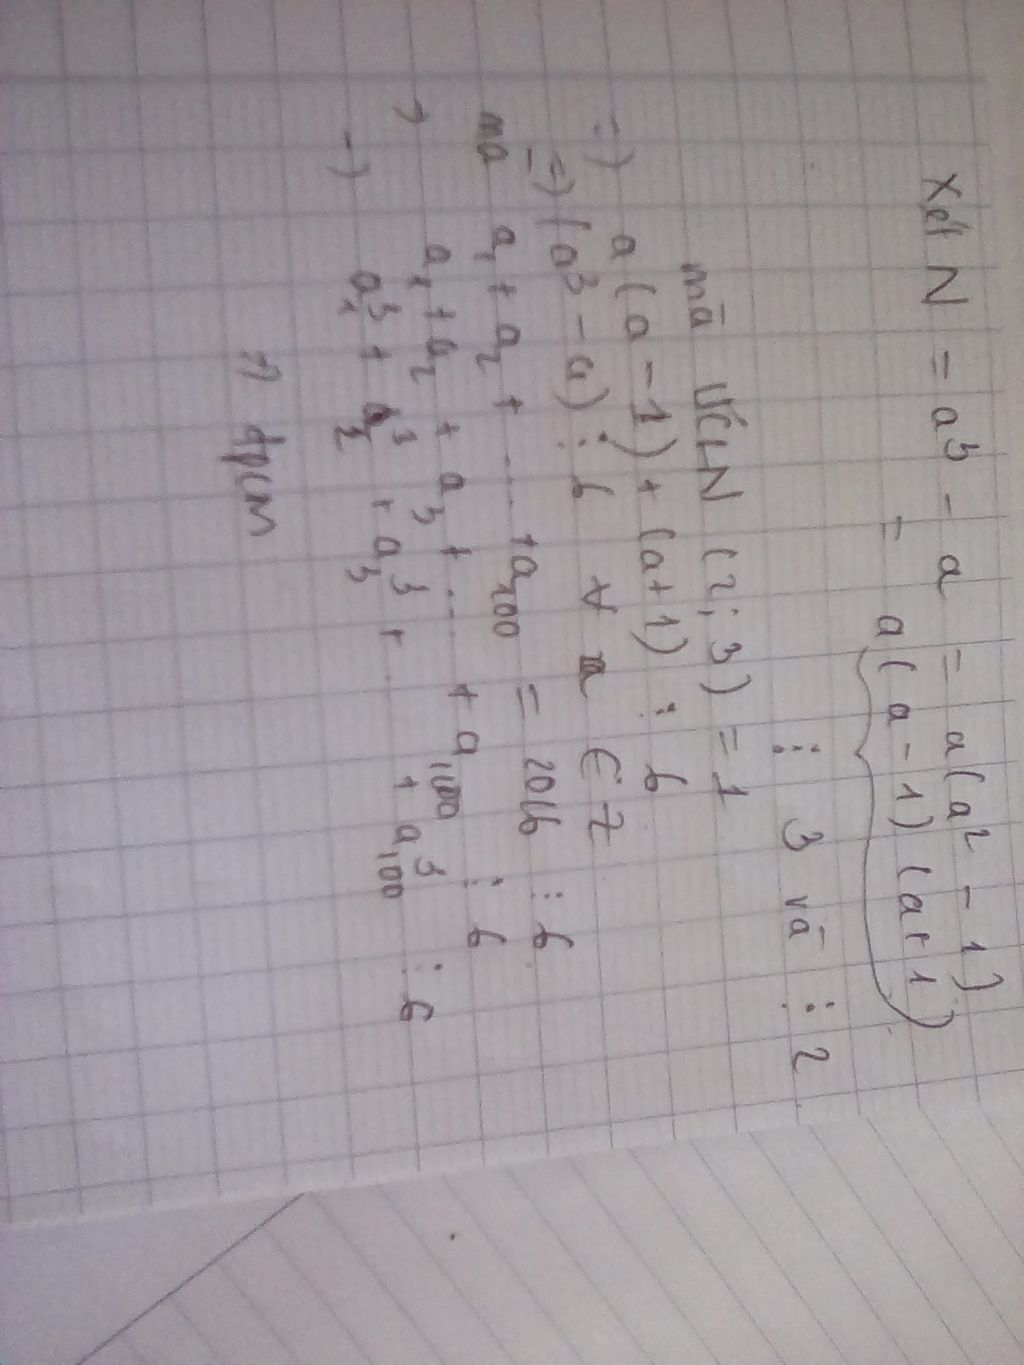 Xét N = a³ - a = a(a² - 1)
= a(a - 1)(a+1)
⋮ 3 và ⋮ 2
mà ƯCLN (2; 3) = 1
=) a(a-1)+(a+1) ⋮ 6
=) (a³ - a) ⋮ 6 ∀ a ∈ Z
mà a₁ + a₂ + .... + a₁₀₀ = 2016 ⋮ 6
a₁ + a₂ + a₃ + ... + a₁₀₀ ⋮ 6
a₁³ + a₂³ + a₃³ + + a₁₀₀³ ⋮ 6
=) đpcm